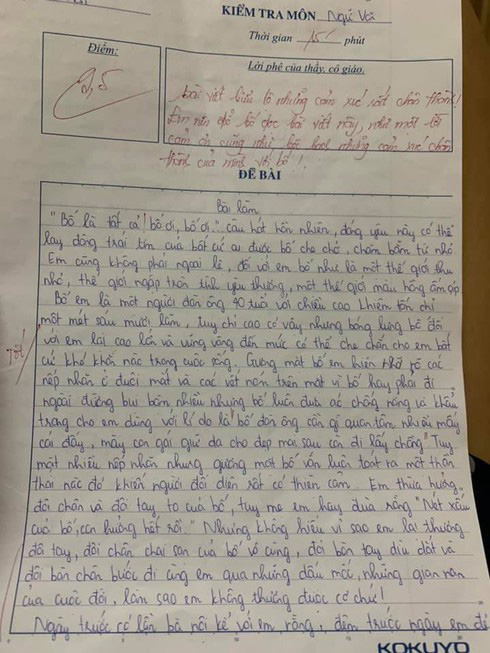 KIỂM TRA MÔN Ngữ Văn
Thời gian 15' phút
Điểm:
9,5
Lời phê của thầy, cô giáo.
bài viết biểu lộ những cảm xúc rất chân thành!
Em nên để bố đọc bài viết này, như một lời
cảm ơn cũng như bộc bạch những cảm xúc chân
thành của mình với bố!
ĐỀ BÀI
Bài làm
"Bố là tất cả! bố ơi, bố ơi.." câu hát hồn nhiên, đáng yêu này có thể
lay động trái tim của bất cứ ai được bố che chở, chăm bẵm từ nhỏ
Em cũng không phải ngoại lệ, đối với em bố như là một thế giới thu
nhỏ, thế giới ngập tràn tình yêu thương, một thế giới màu hồng ấm áp
Bố em là một người đàn ông 40 tuổi với chiều cao khiêm tốn chỉ
một mét sáu mươi lăm, tuy chỉ cao có vậy nhưng bóng lưng bố đối
Tốt!
với em lại cao lớn và vững vàng đến mức có thể che chắn cho em bất
cứ khó khăn nào trong cuộc sống. Gương mặt bố em hiện rõ các
nếp nhăn ở đuôi mắt và các vết nám trên mặt vì bố hay phải đi
ngoài đường bụi bặm nhiều nhưng bố luôn đưa áo chống nắng và khẩu
trang cho em dùng với lí do là "bố đàn ông cần gì quan tâm nhiều mấy
cái đấy, mày con gái giữ da cho đẹp mai sau còn đi lấy chồng" Tuy
mặt nhiều nếp nhăn nhưng gương mặt bố vẫn luôn toát ra một thần
thái nào đó khiến người đối diện rất có thiện cảm. Em thừa hưởng
đôi chân và đôi tay to của bố, tuy mẹ em hay đùa rằng "Nét xấu
của bố, con hưởng hết rồi." Nhưng không hiểu vì sao em lại thương
đôi tay, đôi chân chai sạn của bố vô cùng, đôi bàn tay dìu dắt và
đôi bàn chân bước đi cùng em qua những dấu mốc, những gian nan
của cuộc đời, làm sao em không thương được cơ chứ!
Ngày trước có lần bà nội kể với em rằng, đêm trước ngày em đẻ
KOKUYO